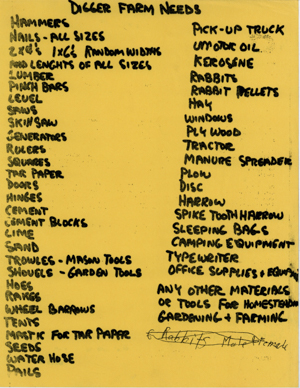 DIGGER FARM NEEDS
HAMMERS
NAILS - ALL SIZES
2x4's 1x6's RANDOM WIDTHS
AND LENGHTS OF ALL SIZES
LUMBER
PINCH BARS
LEVEL
SAWS
SKILSAW
GENERATORS
RULERS
SQUARES
TAR PAPER
DOORS
HINGES
CEMENT
CEMENT BLOCKS
LIME
SAND
TROWLES - MASON TOOLS
SHOVELS - GARDEN TOOLS
HOES
RAKES
WHEEL BARROWS
TENTS
MASTIC FOR TAR PAPER
SEEDS
WATER HOSE
PAILS
PICK-UP TRUCK
MOTOR OIL
KEROSENE
RABBITS
RABBIT PELLETS
HAY
WINDOWS
PLYWOOD
TRACTOR
MANURE SPREADER
PLOW
DISC
HARROW
SPIKE TOOTH HARROW
SLEEPING BAGS
CAMPING EQUIPMENT
TYPEWRITER
OFFICE SUPPLIES + EQUIP
ANY OTHER MATERIALS
OR TOOLS FOR HOMESTEADING
GARDENING + FARMING
Rabbits Male